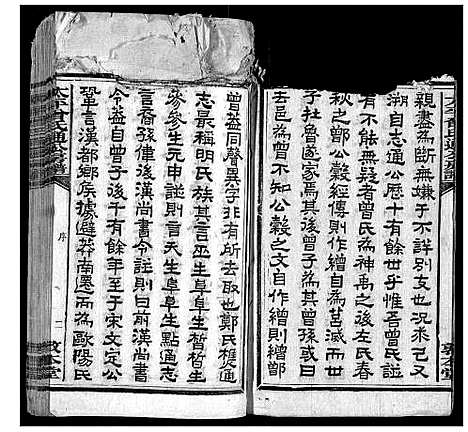 親盡為斷無嫌于不詳別友也況丞己又
溯自志通公歷十有餘世乎惟吾曾氏諡
有不能無疑者曾氏為神禹之後左氏春
秋之鄫公穀經傳則作繒自為莒滅而世
子杜魯鄫家焉其後曾子為其曾孫或曰
去邑為曾不知公穀之文自作繒則繒鄫
曾葢同聲異字非有所去取也鄭氏樵通
志最稱明氏族其言巫生阜阜生晳晳生
參參生元申諡則言天生阜阜生點通志
言裔孫偉後漢尚書令註則曰前漢尚書
令葢自曾子後千有餘年至于宋文定公
鞏言漢都鄉矦據避莽南遷而為歐陽氏
序
敦本堂